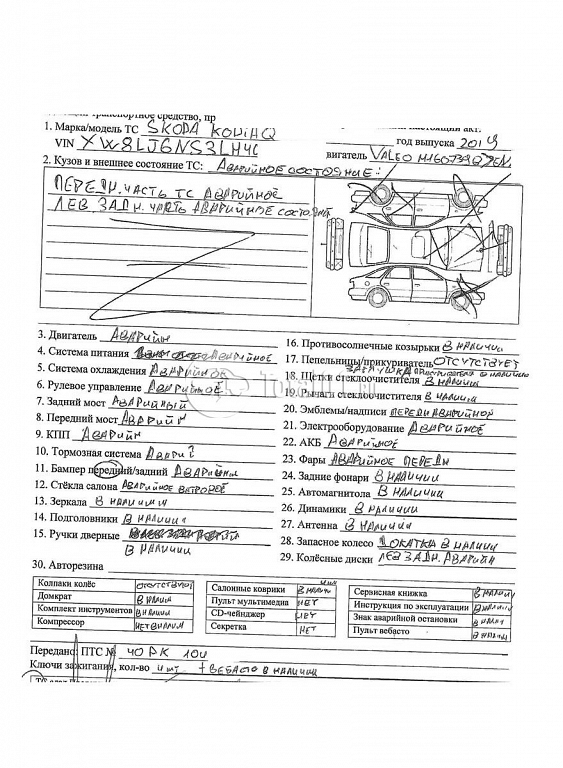 транспортное средство, пр
1. Марка/модель ТС SKODA KODIAQ
VIN XW8LJ6NS3LH4C
год выпуска 2019
двигатель VALEO
2. Кузов и внешнее состояние ТС: АВАРИЙНОЕ СОСТОЯНИЕ:
ПЕРЕДН. ЧАСТЬ ТС АВАРИЙНОЕ
ЛЕВ. ЗАДН. ЧАСТЬ АВАРИЙНОЕ СОСТОЯНИЕ
3. Двигатель АВАРИЙН
4. Система питания АВАРИЙНОЕ
5. Система охлаждения АВАРИЙНОЕ
6. Рулевое управление АВАРИЙНОЕ
7. Задний мост АВАРИЙНЫЙ
8. Передний мост АВАРИЙН
9. КПП АВАРИЙН
10. Тормозная система АВАРИЙ
11. Бампер передний/задний АВАРИЙНЫ
12. Стёкла салона АВАРИЙНОЕ ВЕТРОВОЕ
13. Зеркала В НАЛИЧИИ
14. Подголовники В НАЛИЧИИ
15. Ручки дверные
В НАЛИЧИИ
16. Противосолнечные козырьки В НАЛИЧИИ
17. Пепельницы/прикуриватель ОТСУТСТВУЕТ
ЗАГЛУШКА ПРИКУРИВАТЕЛЯ В НАЛИЧИИ
18. Щётки стеклоочистителя В НАЛИЧИИ
19. Рычаги стеклоочистителя В НАЛИЧИИ
20. Эмблемы/надписи ПЕРЕДН АВАРИЙНОЙ
21. Электрооборудование АВАРИЙНОЕ
22. АКБ АВАРИЙНОЕ
23. Фары АВАРИЙНОЕ ПЕРЕДН
24. Задние фонари В НАЛИЧИИ
25. Автомагнитола В НАЛИЧИИ
26. Динамики В НАЛИЧИИ
27. Антенна В НАЛИЧИИ
28. Запасное колесо ДОКАТКА В НАЛИЧИИ
29. Колёсные диски ЛЕВ ЗАДН. АВАРИЙН
30. Авторезина
Колпаки колёс ОТСУТСТВУЮТ
Домкрат В НАЛИЧИИ
Комплект инструментов В НАЛИЧИИ
Компрессор НЕТ В НАЛИЧИИ
Салонные коврики В НАЛИЧИИ
Пульт мультимедиа НЕТ
CD-чейнджер НЕТ
Секретка НЕТ
Сервисная книжка В НАЛИЧИИ
Инструкция по эксплуатации В НАЛИЧИИ
Знак аварийной остановки В НАЛИЧИИ
Пульт вебасто В НАЛИЧИИ
Передано: ПТС № 40 РК 104
Ключи зажигания, кол-во 4 шт. + ВЕБАСТО В НАЛИЧИИ